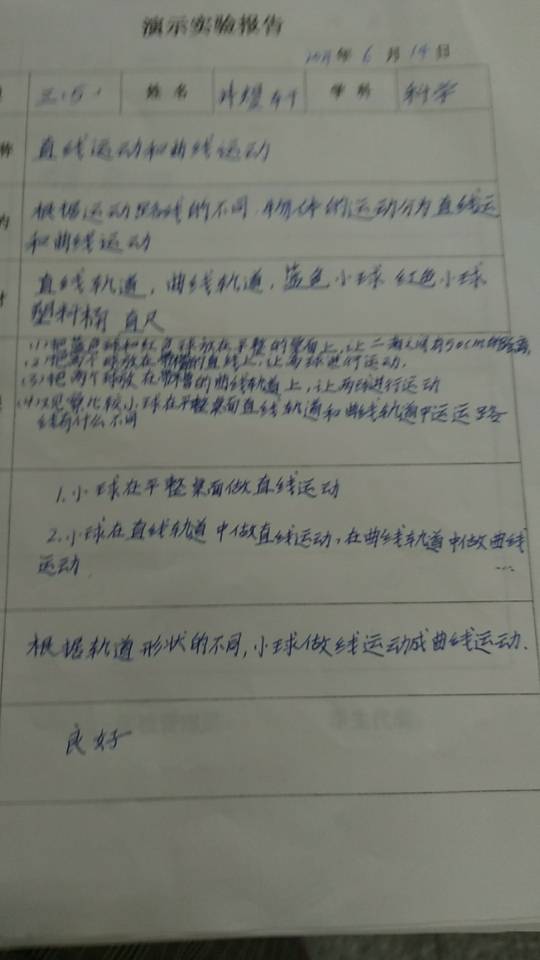 演示实验报告
年 6 月 14 日
三.5. 姓名 学科 科学
称 直线运动和曲线运动
根据运动路线的不同,物体的运动分为直线运
和曲线运动
直线轨道,曲线轨道,蓝色小球 红色小球
塑料桶 直尺
(1)把蓝色球和红色球放在平整的桌面上,让二者之间有50cm的距离,
(2)把两个球放在带槽的直线上,让两球进行运动.
(3)把两个球放在带槽的曲线轨道上,让两球进行运动
(4)观察比较小球在平整桌面直线轨道和曲线轨道中运运路
线有什么不同
1.小球在平整桌面做直线运动
2.小球在直线轨道中做直线运动,在曲线轨道中做曲线
运动
根据轨道形状的不同,小球做线运动或曲线运动.
良好